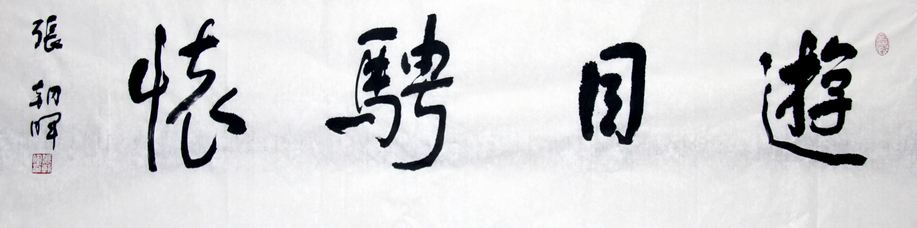 遊目騁懷
張朝暉